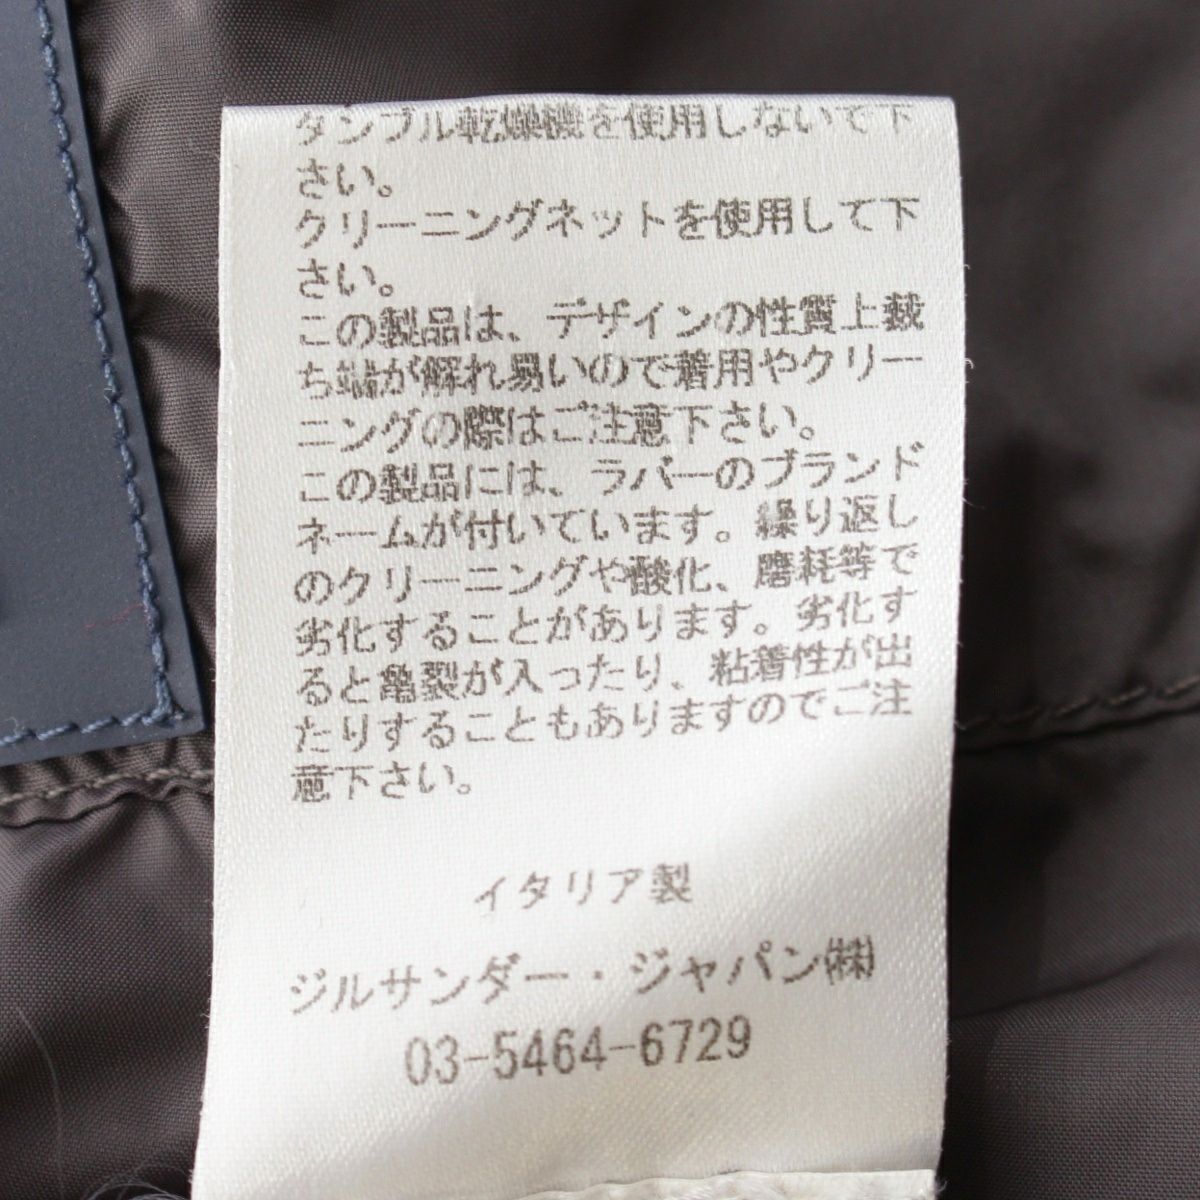 タンブル乾燥機を使用しないで下
さい。
クリーニングネットを使用して下
さい。
この製品は、デザインの性質上裁
ち端が解れ易いので着用やクリー
ニングの際はご注意下さい。
この製品には、ラバーのブランド
ネームが付いています。繰り返し
のクリーニングや酸化、磨耗等で
劣化することがあります。劣化す
ると亀裂が入ったり、粘着性が出
たりすることもありますのでご注
意下さい。
イタリア製
ジルサンダー・ジャパン㈱
03-5464-6729